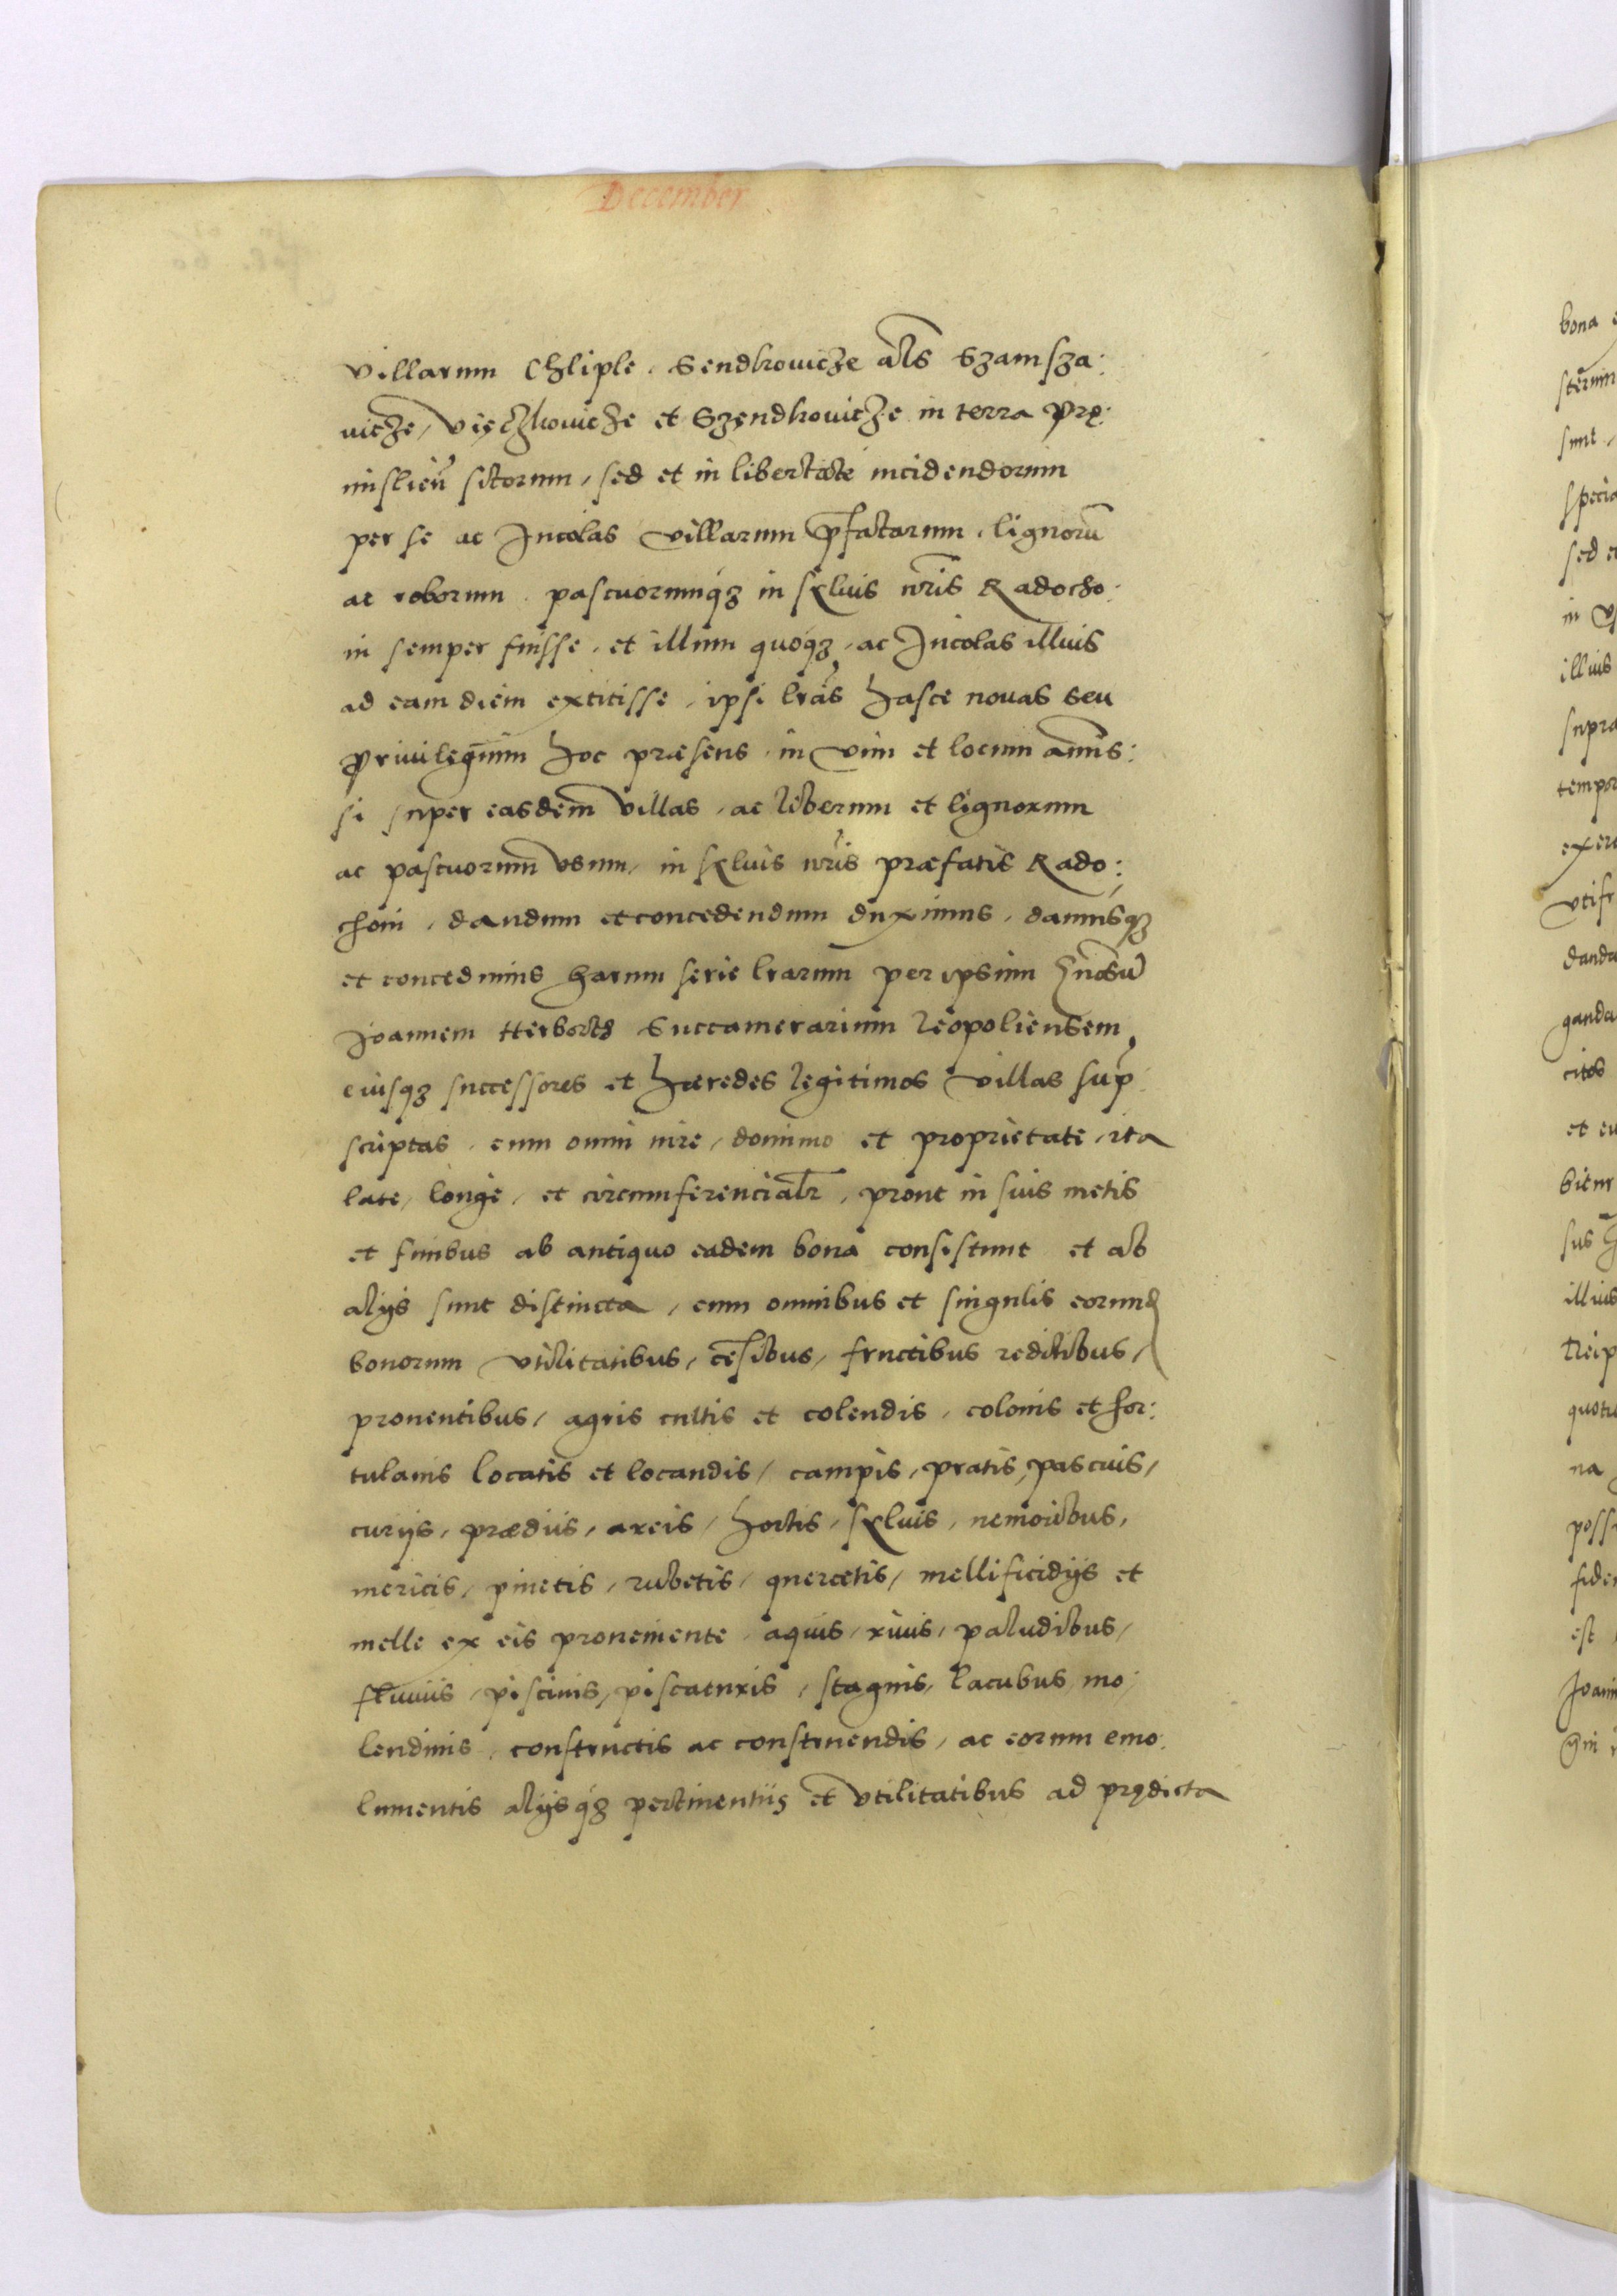 December
villarum Chliple, Sendkovicze als̄ Szamsza:
vicze, Vięczkovicze et Szęndkovicze in terra Prę:
misliēn̄ sitorum, sed et in libertate incidendorum
per se ac Incolas villarum p̄fatarum, lignorū
ac roborum, pascuorumq́ꝫ in sylvis nr̄is Radocho:
in semper fuisse, et illum quoqꝫ, ac Incolas illius
ad eam diem extitisse, ipsi lrā̄s hasce novas seu
Privilegium hoc præsens, in vim et locum amis:
si super easdem villas, ac liberum et lignorum
ac pascuorum usum, in sylvis nr̄is præfatis Rado:
choin, dandum et concedendum duximus, damusq́ꝫ
et concedimus harum serie lrarum per ipsum Gn̄osū
Joannem Herborth Succamerarium Leopoliensem,
eiusqꝫ successores et hæredes legitimos villas sup̄:
scriptas, cum omni iure, dominio et proprietate, ita
late, longe, et circumferencialr̄, prout in suis metis
et finibus ab antiquo eadem bona consistunt et ab
alijs sunt distincta, cum omnibus et singulis eorund̄
bonorum utilitatibus, cēsibus, fructibus reditibus,
proventibus, agris cultis et colendis, colonis et hor:
tulanis locatis et locandis, campis, pratis, pascuis,
curijs, prædiis, areis, hortis, sylvis, nemoribus,
mericis, pinetis, rubetis, quercetis, mellificidijs et
melle ex eis proveniente, aquis, rivis, paludibus,
fluviis, piscinis, piscaturis, stagnis, lacubus, mo:
lendinis, constructis ac construendis, ac eorum emo:
lumentis alijsq́ꝫ pertinentiis et utilitatibus ad prędicta
bona
sunt,
specia
sed e
illius
supra
tempor
danda
ganda
citos
et eu
illius
Reip
quoti
na
poss
fide
est
Joann